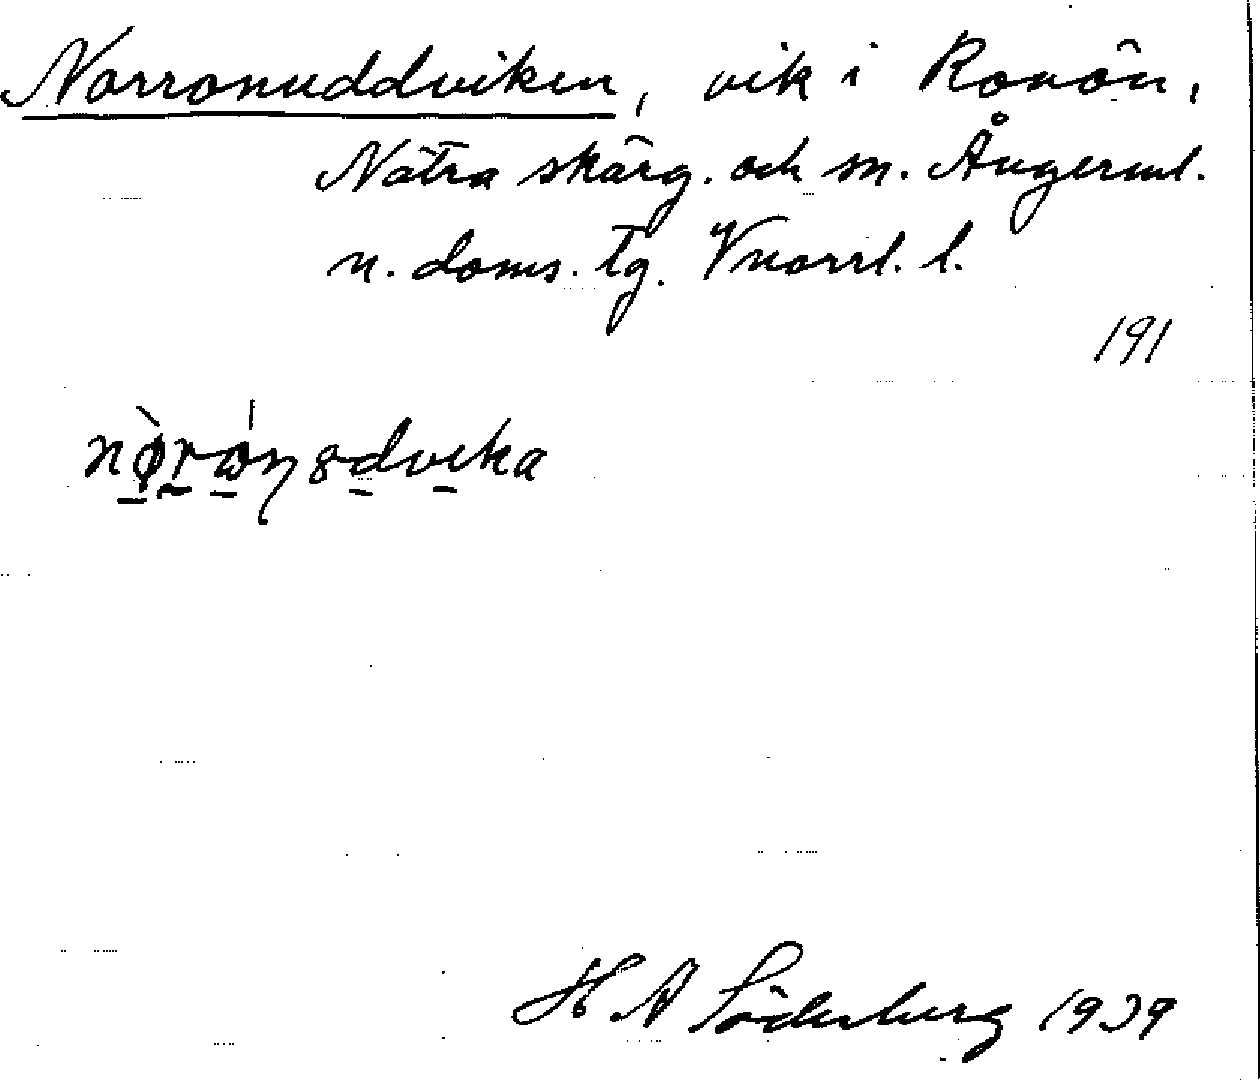 Norronuddviken, vik i Ronön,
Nätra skärg. och sn. Ångerml.
n. doms. tg. Vnorrl. l.
191
H A Söderberg 1939